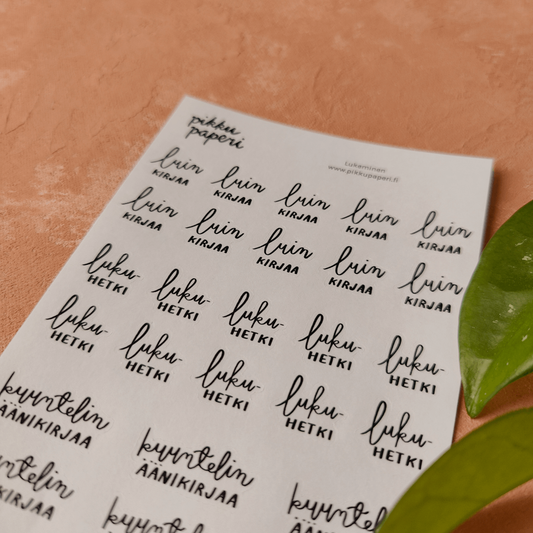 pikku
paperi
Lukeminen
www.pikkupaperi.fi
luin luin luin luin luin
KIRJAA KIRJAA KIRJAA KIRJAA KIRJAA
luin luin luin luin luin
KIRJAA KIRJAA KIRJAA KIRJAA KIRJAA
luku- luku- luku- luku- luku-
HETKI HETKI HETKI HETKI HETKI
luku- luku- luku- luku- luku-
HETKI HETKI HETKI HETKI HETKI
kuuntelin kuuntelin kuuntelin
ÄÄNIKIRJAA ÄÄNIKIRJAA ÄÄNIKIRJAA
kuuntelin kuuntelin
ÄÄNIKIRJAA